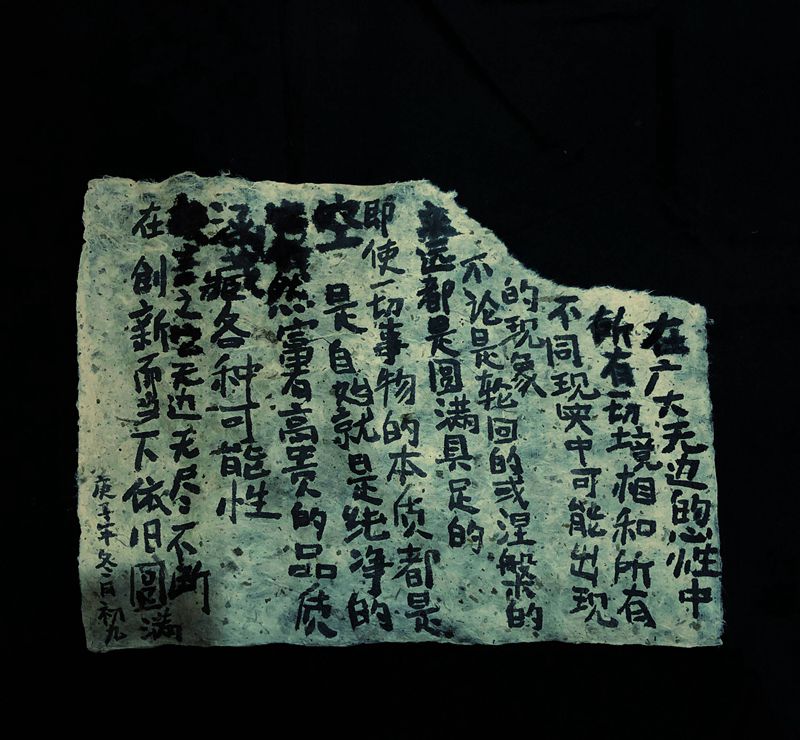 在广大无边的心性中
所有一切境相和所有
不同现实中可能出现
的现象
不论是轮回的或涅槃的
永远都是圆满具足的
即使一切事物的本质都是
空 是自始就是纯净的
然富有高贵的品质
涵藏各种可能性
之空无边无尽不断
在创新而当下依旧圆满
庚子年冬月初九